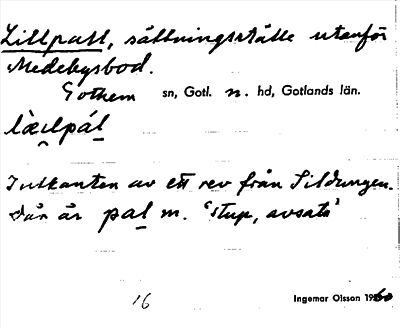 Lillpall, sättningsställe utanför
Medebysbod.
Gothem sn, Gotl. n. hd, Gotlands län.
I utkanten av ett rev från Sildungen.
Där är pal m. 'stup, avsats'
16 Ingemar Olsson 1960